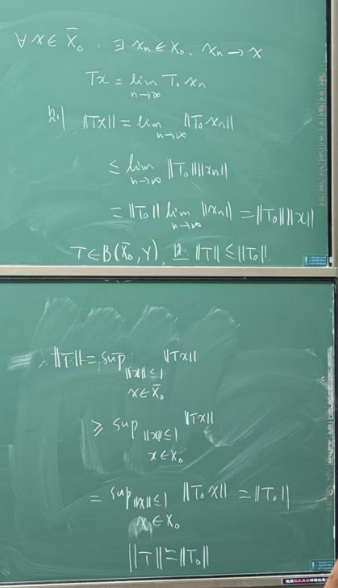 ∀x∈X̄₀, ∃xₙ∈X₀, xₙ→x
Tx = lim_{n→∞} T₀xₙ
则 ||Tx|| = lim_{n→∞} ||T₀xₙ||
≤ lim_{n→∞} ||T₀||||xₙ||
= ||T₀|| lim_{n→∞} ||xₙ|| = ||T₀||||x||
T∈B(X̄₀,Y), 且 ||T||≤||T₀||
∴ ||T|| = sup_{||x||≤1, x∈X̄₀} ||Tx||
≥ sup_{||x||≤1, x∈X₀} ||Tx||
= sup_{||x||≤1, x∈X₀} ||T₀x|| = ||T₀||
||T||=||T₀||